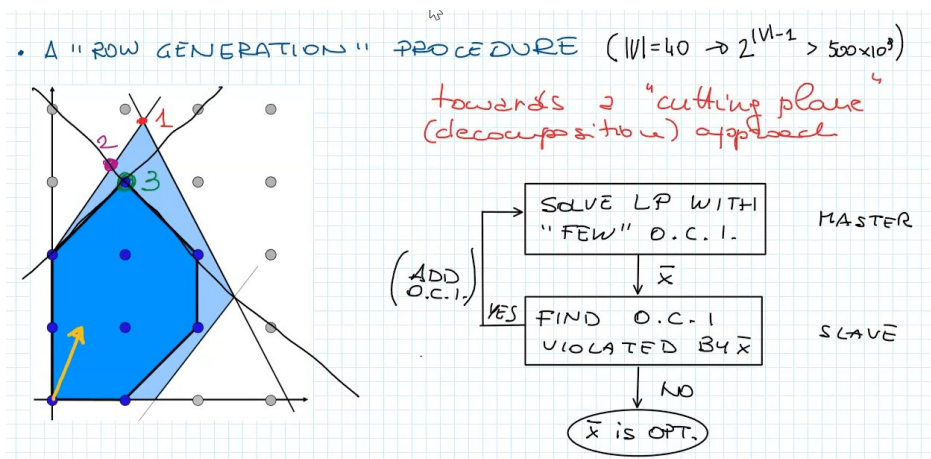 • A "ROW GENERATION" PROCEDURE (|V|=40 → 2^|V|-1 > 500×10⁹)
towards a "cutting plane"
(decomposition) approach
1
2
3
SOLVE LP WITH
"FEW" O.C.I.
MASTER
x̄
(ADD
O.C.I.)
YES
FIND O.C.I
VIOLATED BY x̄
SLAVE
NO
x̄ is OPT.